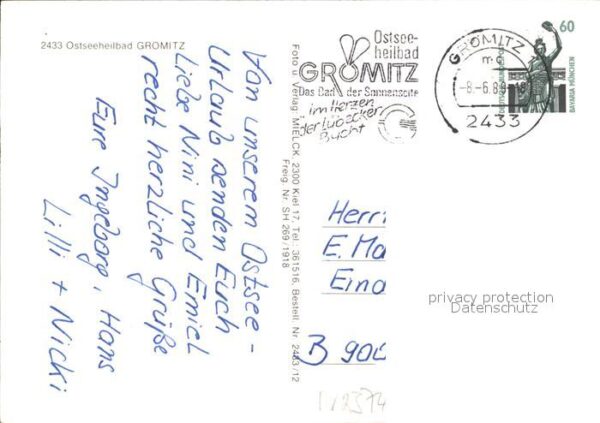 2433 Ostseeheilbad GRÖMITZ
Von unserem Ostsee-
Urlaub senden Euch
Liebe Nini und Emiel
recht herzliche Grüße
Eure Ingeborg, Hans
Lilli + Nicki
Foto u. Verlag: MIELCK, 2300 Kiel 17, Tel.: 361516, Bestell. Nr. 2433/12
Freig. Nr. SH 269/1918
Ostsee-
heilbad
GRÖMITZ
Das Bad der Sonnenseite
im Herzen
der Lübecker
Bucht
GRÖMITZ
m
2433
60
DEUTSCHE BUNDESPOST
BAVARIA MÜNCHEN
Herrn
E. Ma
Eina
B 900
privacy protection
Datenschutz